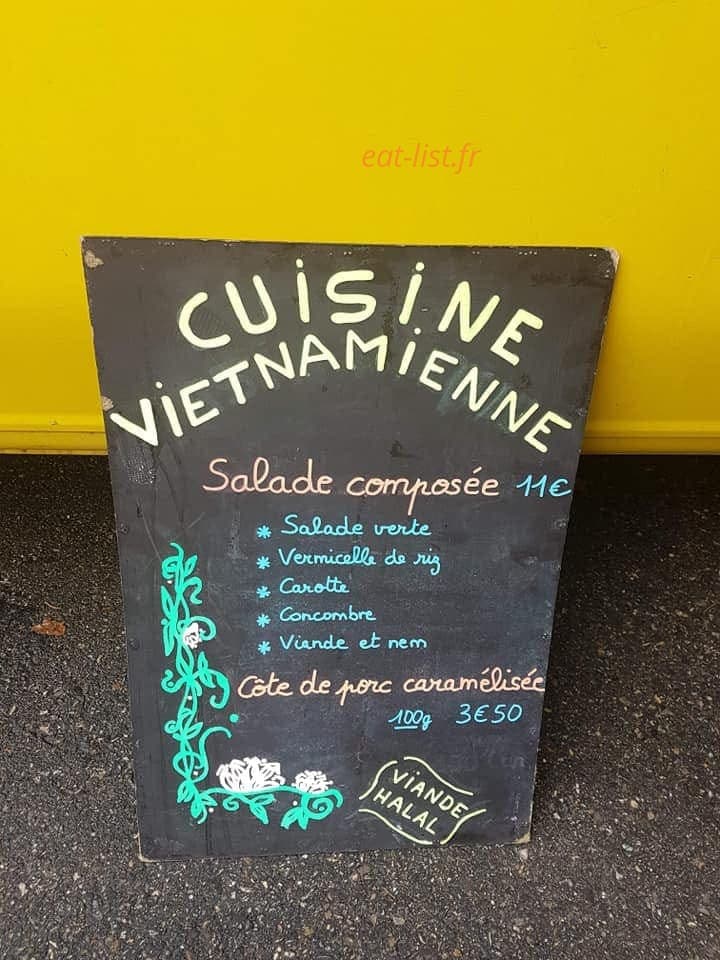 eat-list.fr
CUiSiNE
ViETNAMiENNE
Salade composée 11€
* Salade verte
* Vermicelle de riz
* Carotte
* Concombre
* Viande et nem
Côte de porc caramélisée
100g 3€50
ViANDE
HALAL